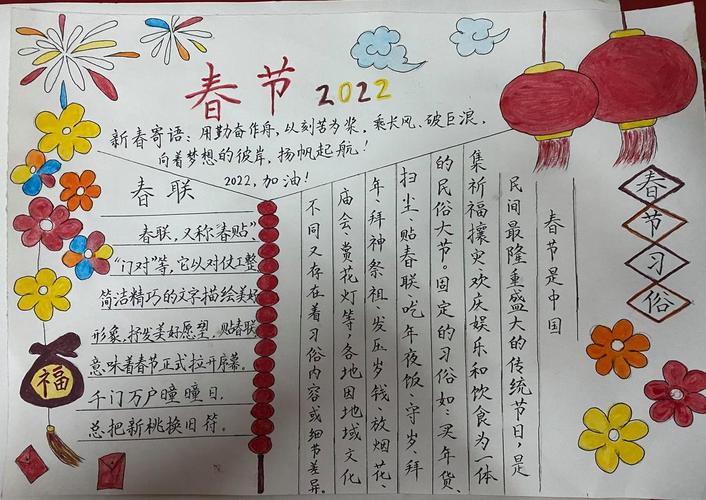 春节 2022
新春寄语：用勤奋作舟，以刻苦为桨，乘长风、破巨浪，
向着梦想的彼岸，扬帆起航！
2022，加油！
春联
春联，又称“春贴”、
“门对”等，它以对仗工整
简洁精巧的文字描绘美好
形象，抒发美好愿望，贴春联
意味着春节正式拉开序幕。
千门万户曈曈日，
总把新桃换旧符。
福
春节习俗
春节是中国
民间最隆重盛大的传统节日，是
集祈福攘灾、欢庆娱乐和饮食为一体
的民俗大节。固定的习俗如：买年货、
扫尘、贴春联、吃年夜饭、守岁、拜
年、拜神祭祖、发压岁钱、放烟花、
庙会、赏花灯等，各地因地域文化
不同又存在着习俗内容或细节差异。